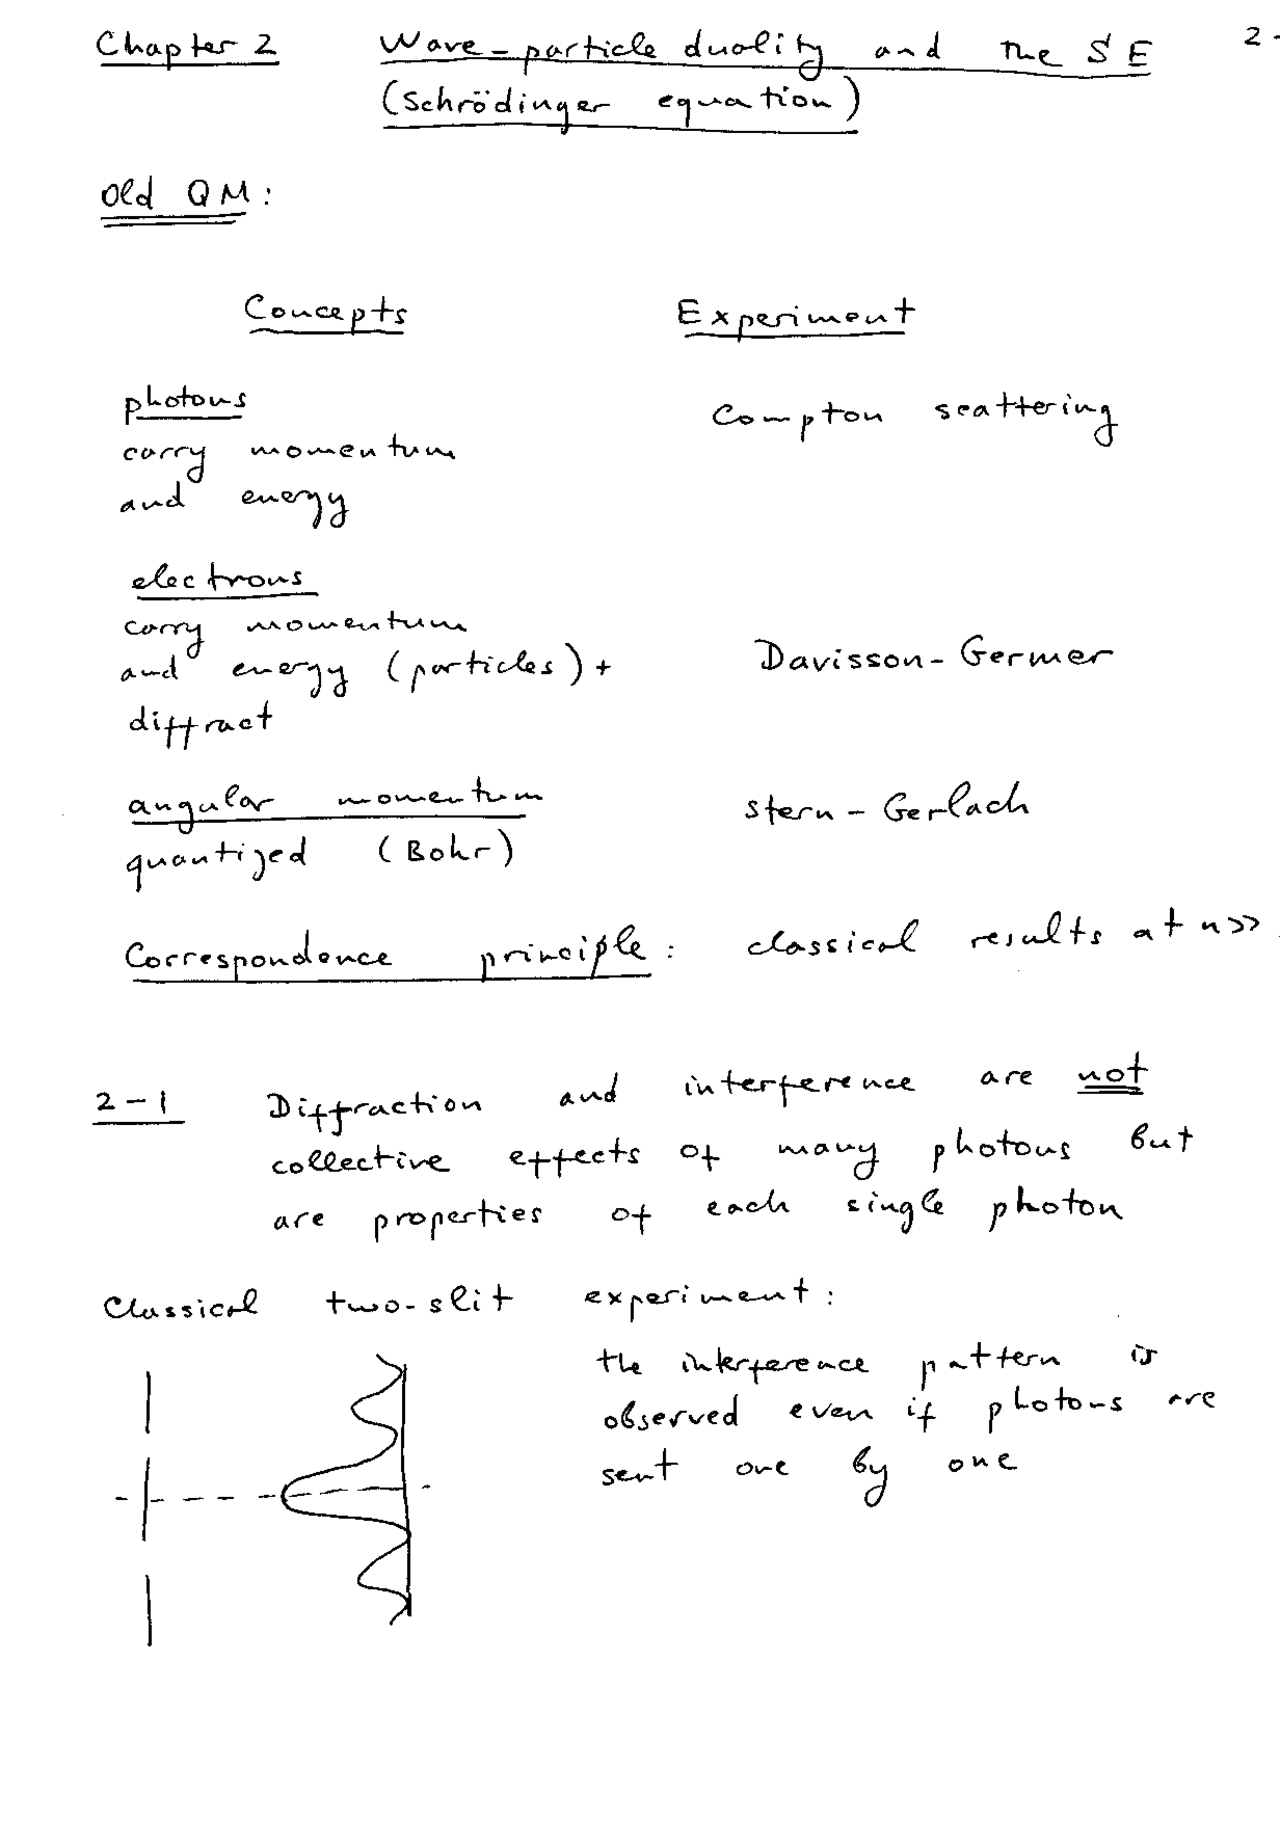 Chapter 2 Wave-particle duality and the SE 2-
(Schrödinger equation)
Old QM:
Concepts Experiment
photons
carry momentum
and energy
Compton scattering
electrons
carry momentum
and energy (particles) +
diffract
Davisson-Germer
angular momentum
quantized (Bohr)
Stern-Gerlach
Correspondence principle: classical results at n>>
2-1 Diffraction and interference are not
collective effects of many photons but
are properties of each single photon
Classical two-slit experiment:
the interference pattern is
observed even if photons are
sent one by one